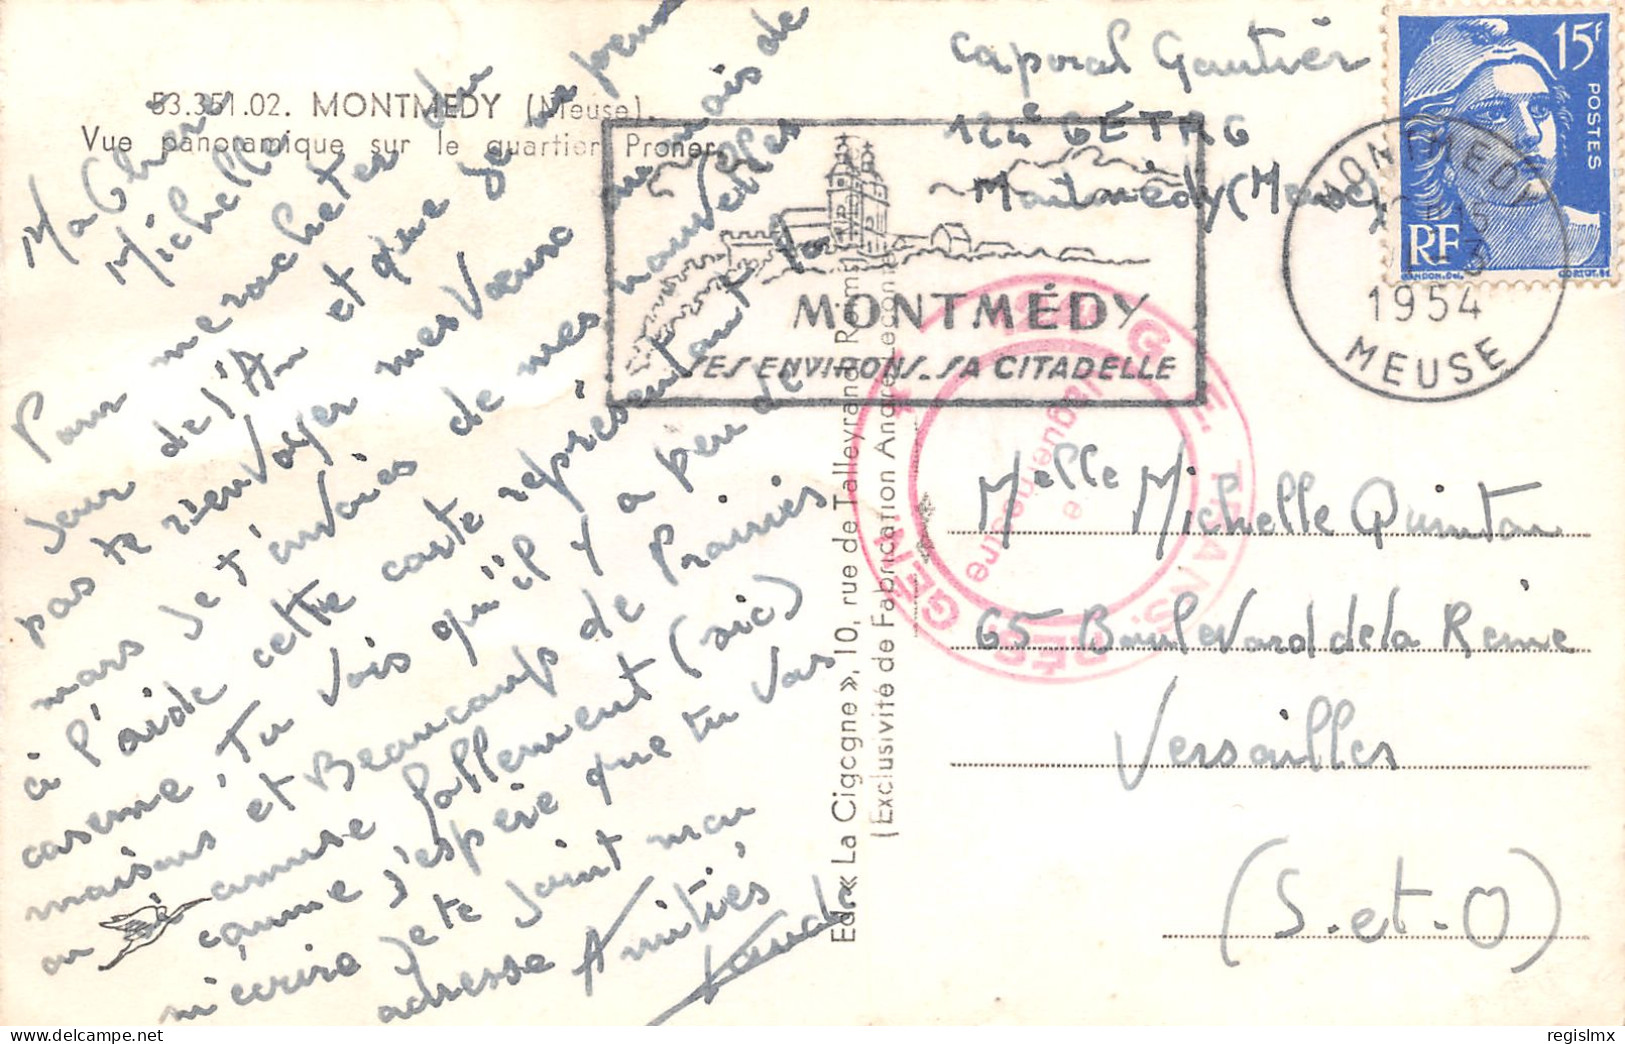 53.351.02. MONTMEDY (Meuse).
Vue panoramique sur le quartier Proner
Ma Chère
Michelle
Pour me racheter du
Jour de l'An et que de un peu
pas te renvoyer mes Voeux mais de
mars je t'envoies de mes nouvelles
à l'aide cette carte représentant la
caserne, Tu vois qu'il y a peu de
maisons et Beaucoup de Prairies
on s'amuse follement (sic)
comme j'espère que tu vas
m'écrire je te joint mon
adresse Amitiés
Ed. « La Cigogne », 10, rue de Talleyrand, Reims
(Exclusivité de Fabrication André Leconte)
Caporal Gautier
124e GETAG
Montmédy (Meuse)
MONTMÉDY
SES ENVIRONS. SA CITADELLE
MONTMEDY
1954
MEUSE
15F
POSTES
RF
GANDON.Del.
CORTOT.SC
Le Vaguemestre
Melle Michelle Quintan
65 Boulevard de la Reine
Versailles
(S.et.O)
regislmx